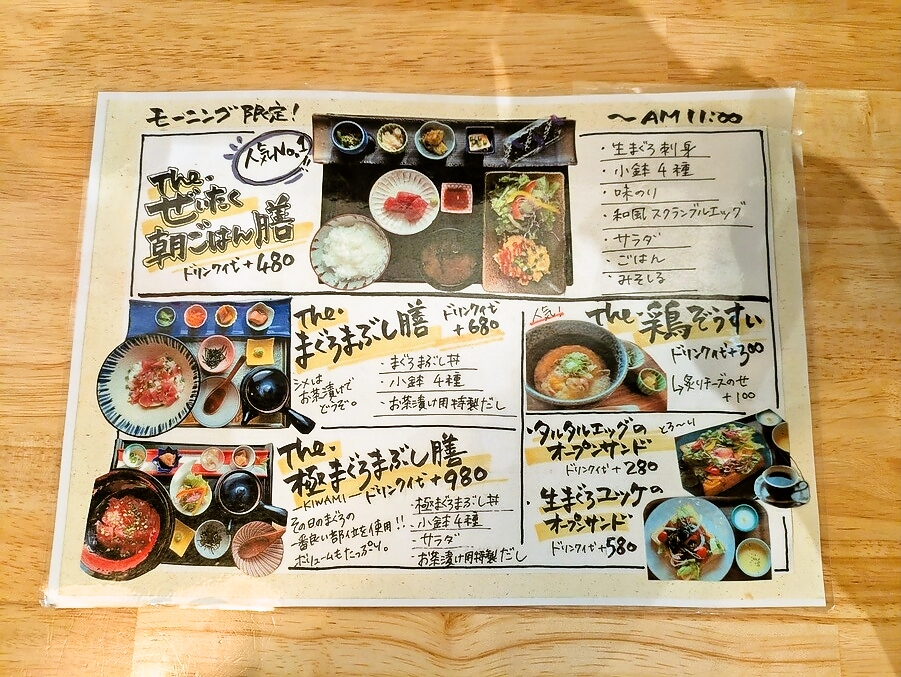 モーニング限定!
〜AM 11:00
人気No.1!!
The.
ぜいたく
朝ごはん膳
ドリンク代+480
・生まぐろ刺身
・小鉢4種
・味のり
・和風スクランブルエッグ
・サラダ
・ごはん
・みそしる
The.
まぐろまぶし膳
ドリンク代
+680
シメは
お茶漬けで
どうぞ。
・まぐろまぶし丼
・小鉢4種
・お茶漬け用特製だし
人気!
The.鶏ぞうすい
ドリンク代+300
↳炙りチーズのせ
+100
The.
極まぐろまぶし膳
-KIWAMI-
ドリンク代+980
その日のまぐろの
一番良い部位を使用!!
ボリュームもたっぷり。
・極まぐろまぶし丼
・小鉢4種
・サラダ
お茶漬け用特製だし
・タルタルエッグの
オープンサンド
とろ〜り
ドリンク代+280
・生まぐろユッケの
オープンサンド
ドリンク代+580